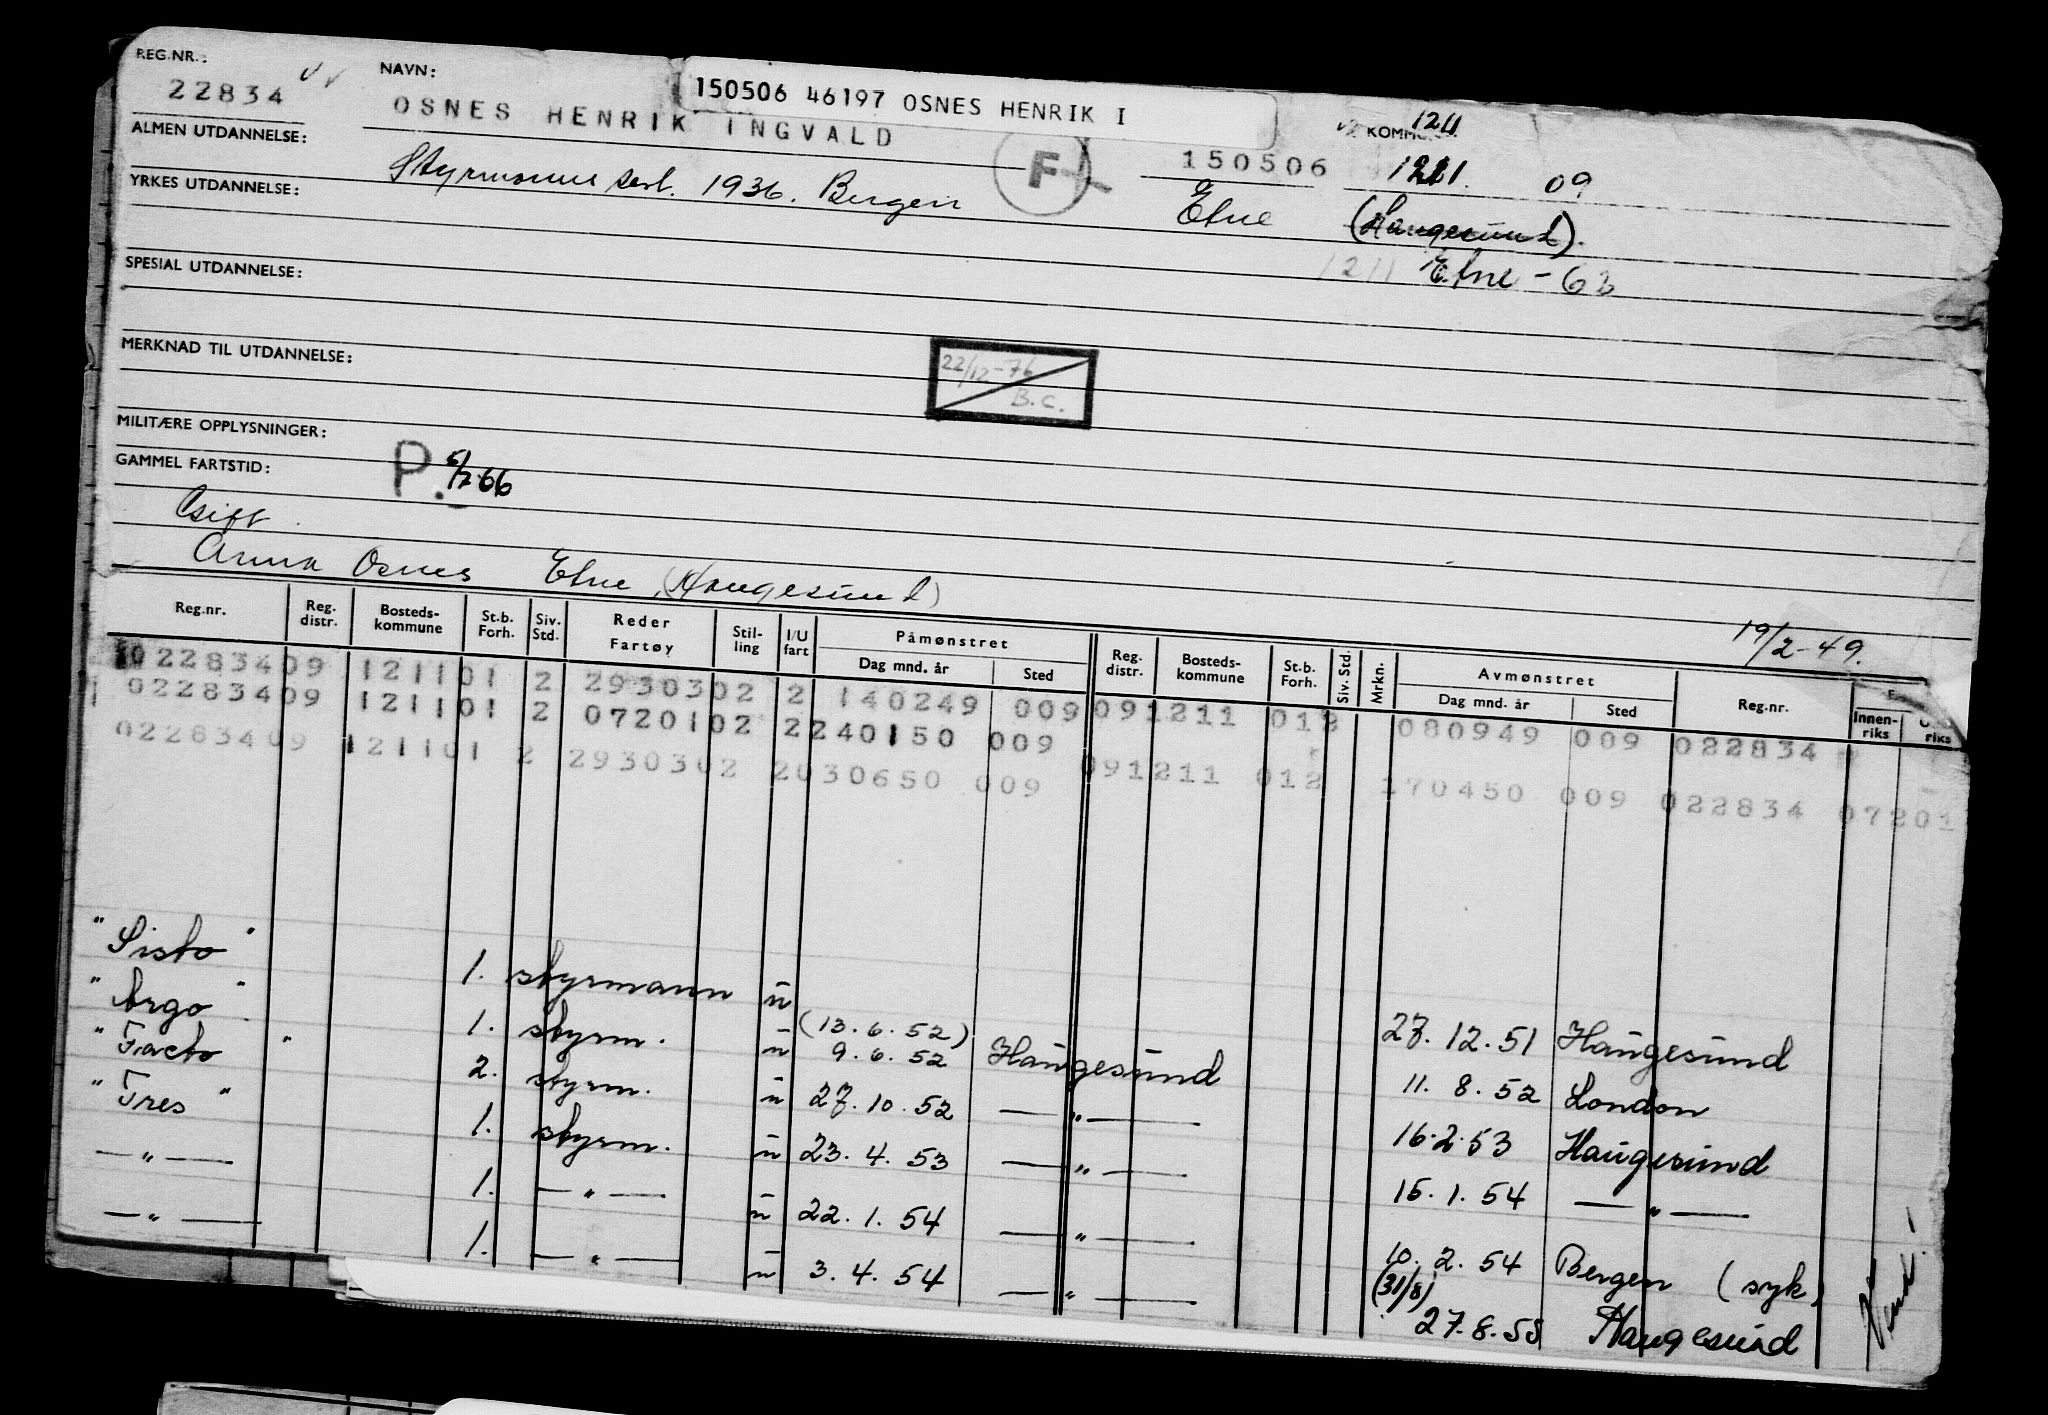 REG.NR.:
22834
NAVN:
150506 46197 OSNES HENRIK I
OSNES HENRIK INGVALD
F
150506
KOMMUNE:
1211
1211. 09
ALMEN UTDANNELSE:
Styrmanns sert. 1936. Bergen
Etne (Haugesund).
YRKES UTDANNELSE:
1211 Etne - 63
SPESIAL UTDANNELSE:
MERKNAD TIL UTDANNELSE:
22/12-76
B.C.
MILITÆRE OPPLYSNINGER:
GAMMEL FARTSTID:
P. 5/7-66
Gift.
Anna Osnes Etne (Haugesund)
19/2-49.
Reg.nr. Reg. distr. Bosteds-kommune St.b. Forh. Siv. Std. Reder Fartøy Stil-ling I/U fart Påmønstret Dag mnd. år Sted Reg. distr. Bosteds-kommune St.b. Forh. Siv. Std. Mrkn. Avmønstret Dag mnd. år Sted Reg.nr. Innen-riks riks
02283409 121101 2 2930302 2 140249 009 091211 012 080949 009 022834
02283409 121101 2 0720102 2240150 009 091211 012 170450 009 022834 07201
02283409 121101 2 2930302 2030650 009
"Sisto" 1. styrmann u (13.6.52) 27.12.51 Haugesund
"Argo" 1. styrm. u 9.6.52 Haugesund 11.8.52 London
"Facto" 2. styrm. u 27.10.52 —"— 16.2.53 Haugesund
"Tres" 1. styrm. u 23.4.53 —"— 15.1.54 —"—
—"— 1. —"— u 22.1.54 —"— 10.2.54 Bergen (syk)
—"— 1. —"— u 3.4.54 —"— (31/8) 27.8.55 Haugesund